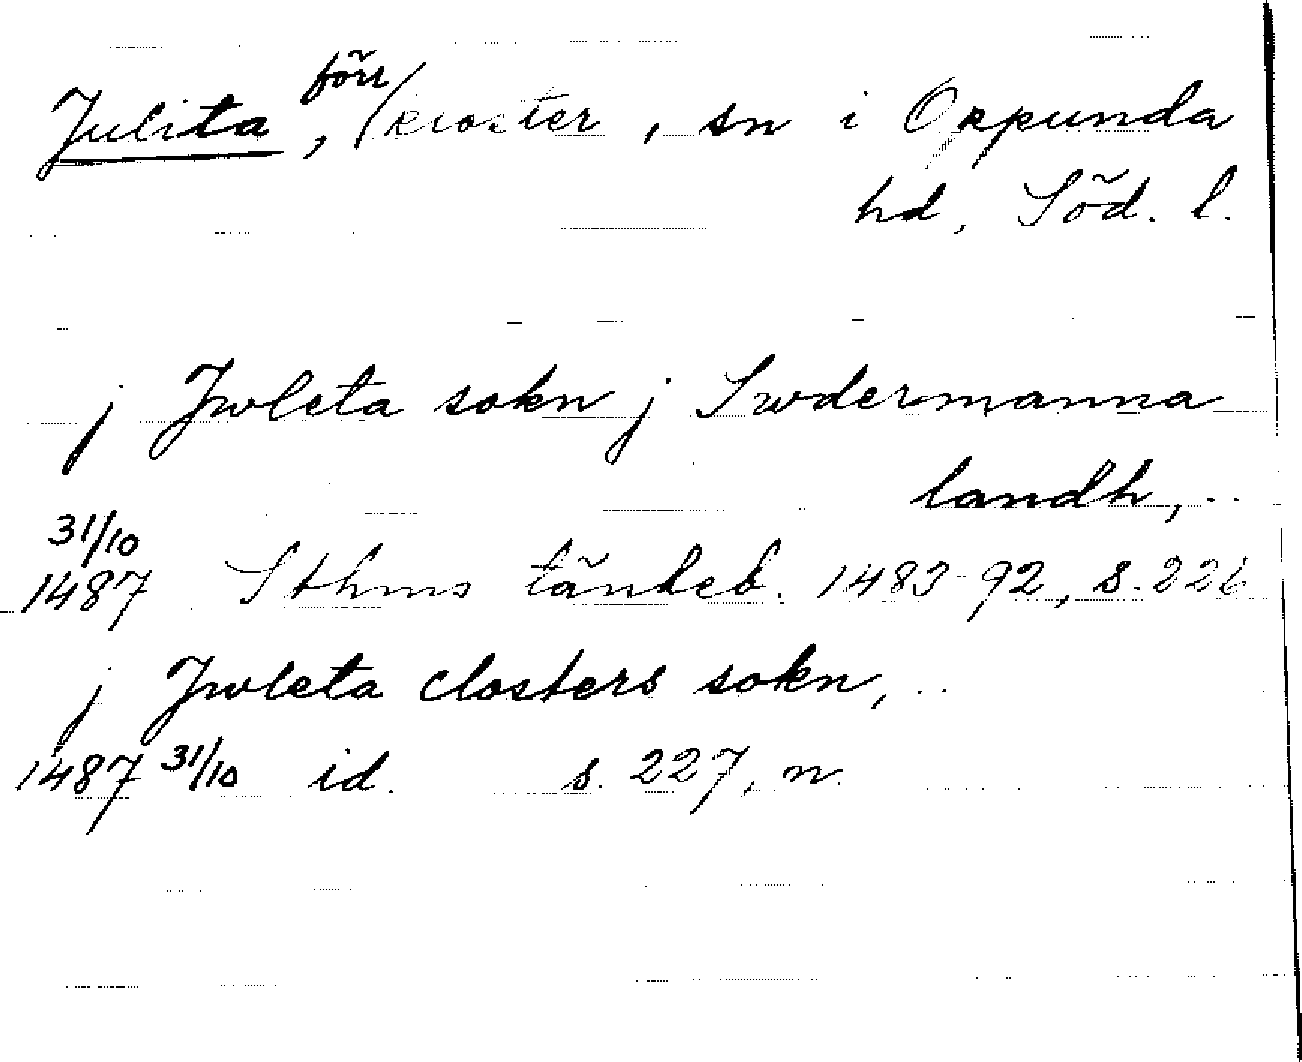 Julita, förr kloster, sn i Oppunda
hd, Söd. l.
j Jwleta sokn j Swdermanna
landh, ..
31/10
1487 Sthms tänkeb. 1483-92, s. 226
j Jwleta closters sokn, ..
1487 31/10 id. s. 227, n.